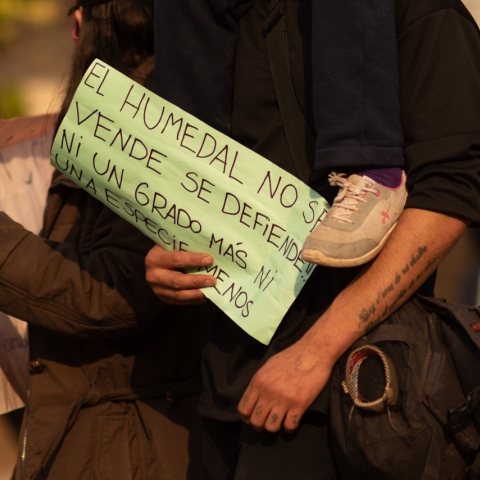 EL HUMEDAL NO SE
VENDE SE DEFIENDE!!
Ni UN GRADO MÁS Ni
UNA ESPECIE MENOS